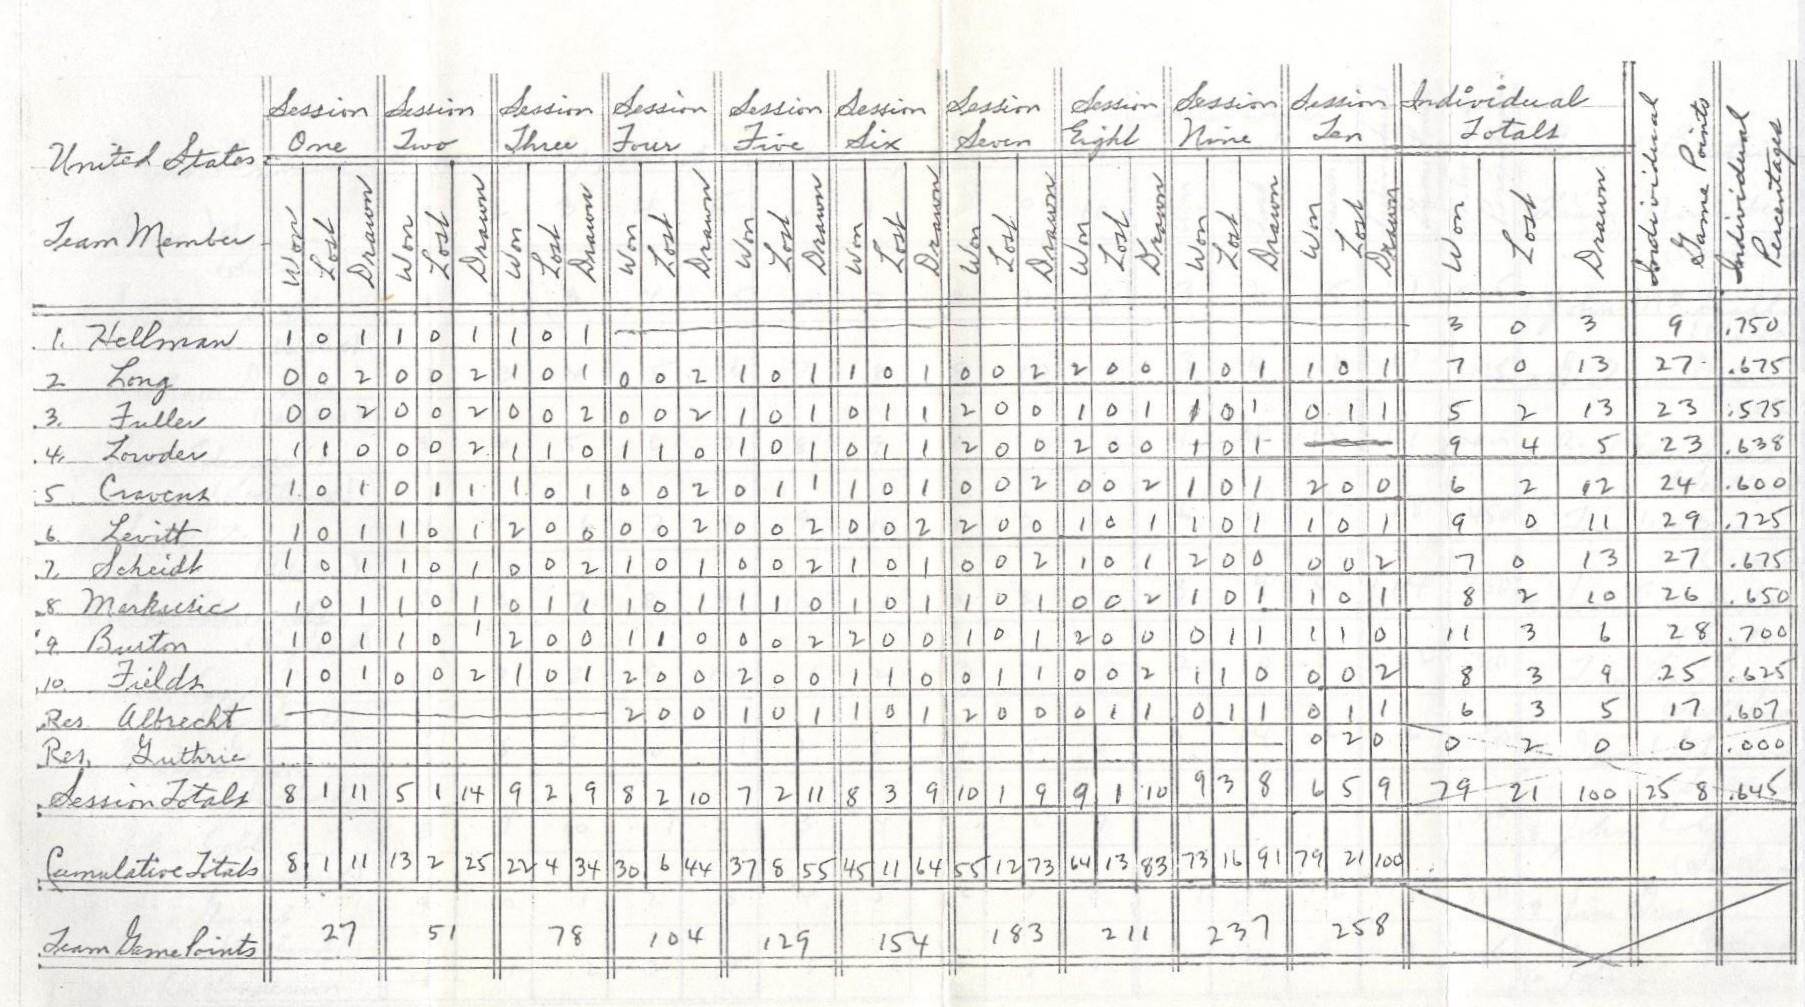 Session Session Session Session Session Session Session Session Session Session Individual Individual Game Points Individual Percentages
One Two Three Four Five Six Seven Eight Nine Ten Totals
United States
Team Member Won Lost Drawn Won Lost Drawn Won Lost Drawn Won Lost Drawn Won Lost Drawn Won Lost Drawn Won Lost Drawn Won Lost Drawn Won Lost Drawn Won Lost Drawn Won Lost Drawn
1. Hellman 1 0 1 1 0 1 1 0 1 3 0 3 9 .750
2 Long 0 0 2 0 0 2 1 0 1 0 0 2 1 0 1 1 0 1 0 0 2 2 0 0 1 0 1 1 0 1 7 0 13 27 .675
3. Fuller 0 0 2 0 0 2 0 0 2 0 0 2 1 0 1 0 1 1 2 0 0 1 0 1 1 0 1 0 1 1 5 2 13 23 .575
4. Lowder 1 1 0 0 0 2 1 1 0 1 1 0 1 0 1 0 1 1 2 0 0 2 0 0 1 0 1 9 4 5 23 .638
5 Cravens 1 0 1 0 1 1 1 0 1 0 0 2 0 1 1 1 0 1 0 0 2 0 0 2 1 0 1 2 0 0 6 2 12 24 .600
6. Levitt 1 0 1 1 0 1 2 0 0 0 0 2 0 0 2 0 0 2 2 0 0 1 0 1 1 0 1 1 0 1 9 0 11 29 .725
7. Scheidt 1 0 1 1 0 1 0 0 2 1 0 1 0 0 2 1 0 1 0 0 2 1 0 1 2 0 0 0 0 2 7 0 13 27 .675
8 Markusic 1 0 1 1 0 1 0 1 1 1 0 1 1 1 0 1 0 1 1 0 1 0 0 2 1 0 1 1 0 1 8 2 10 26 .650
9. Burton 1 0 1 1 0 1 2 0 0 1 1 0 0 0 2 2 0 0 1 0 1 2 0 0 0 1 1 1 1 0 11 3 6 28 .700
10. Fields 1 0 1 0 0 2 1 0 1 2 0 0 2 0 0 1 1 0 0 1 1 0 0 2 1 1 0 0 0 2 8 3 9 25 .625
Res. Albrecht 2 0 0 1 0 1 1 0 1 2 0 0 0 1 1 0 1 1 0 1 1 6 3 5 17 .607
Res. Guthrie 0 2 0 0 2 0 0 .000
Session Totals 8 1 11 5 1 14 9 2 9 8 2 10 7 2 11 8 3 9 10 1 9 9 1 10 9 3 8 6 5 9 79 21 100 258 .645
Cumulative Totals 8 1 11 13 2 25 22 4 34 30 6 44 37 8 55 45 11 64 55 12 73 64 13 83 73 16 91 79 21 100
Team Game Points 27 51 78 104 129 154 183 211 237 258